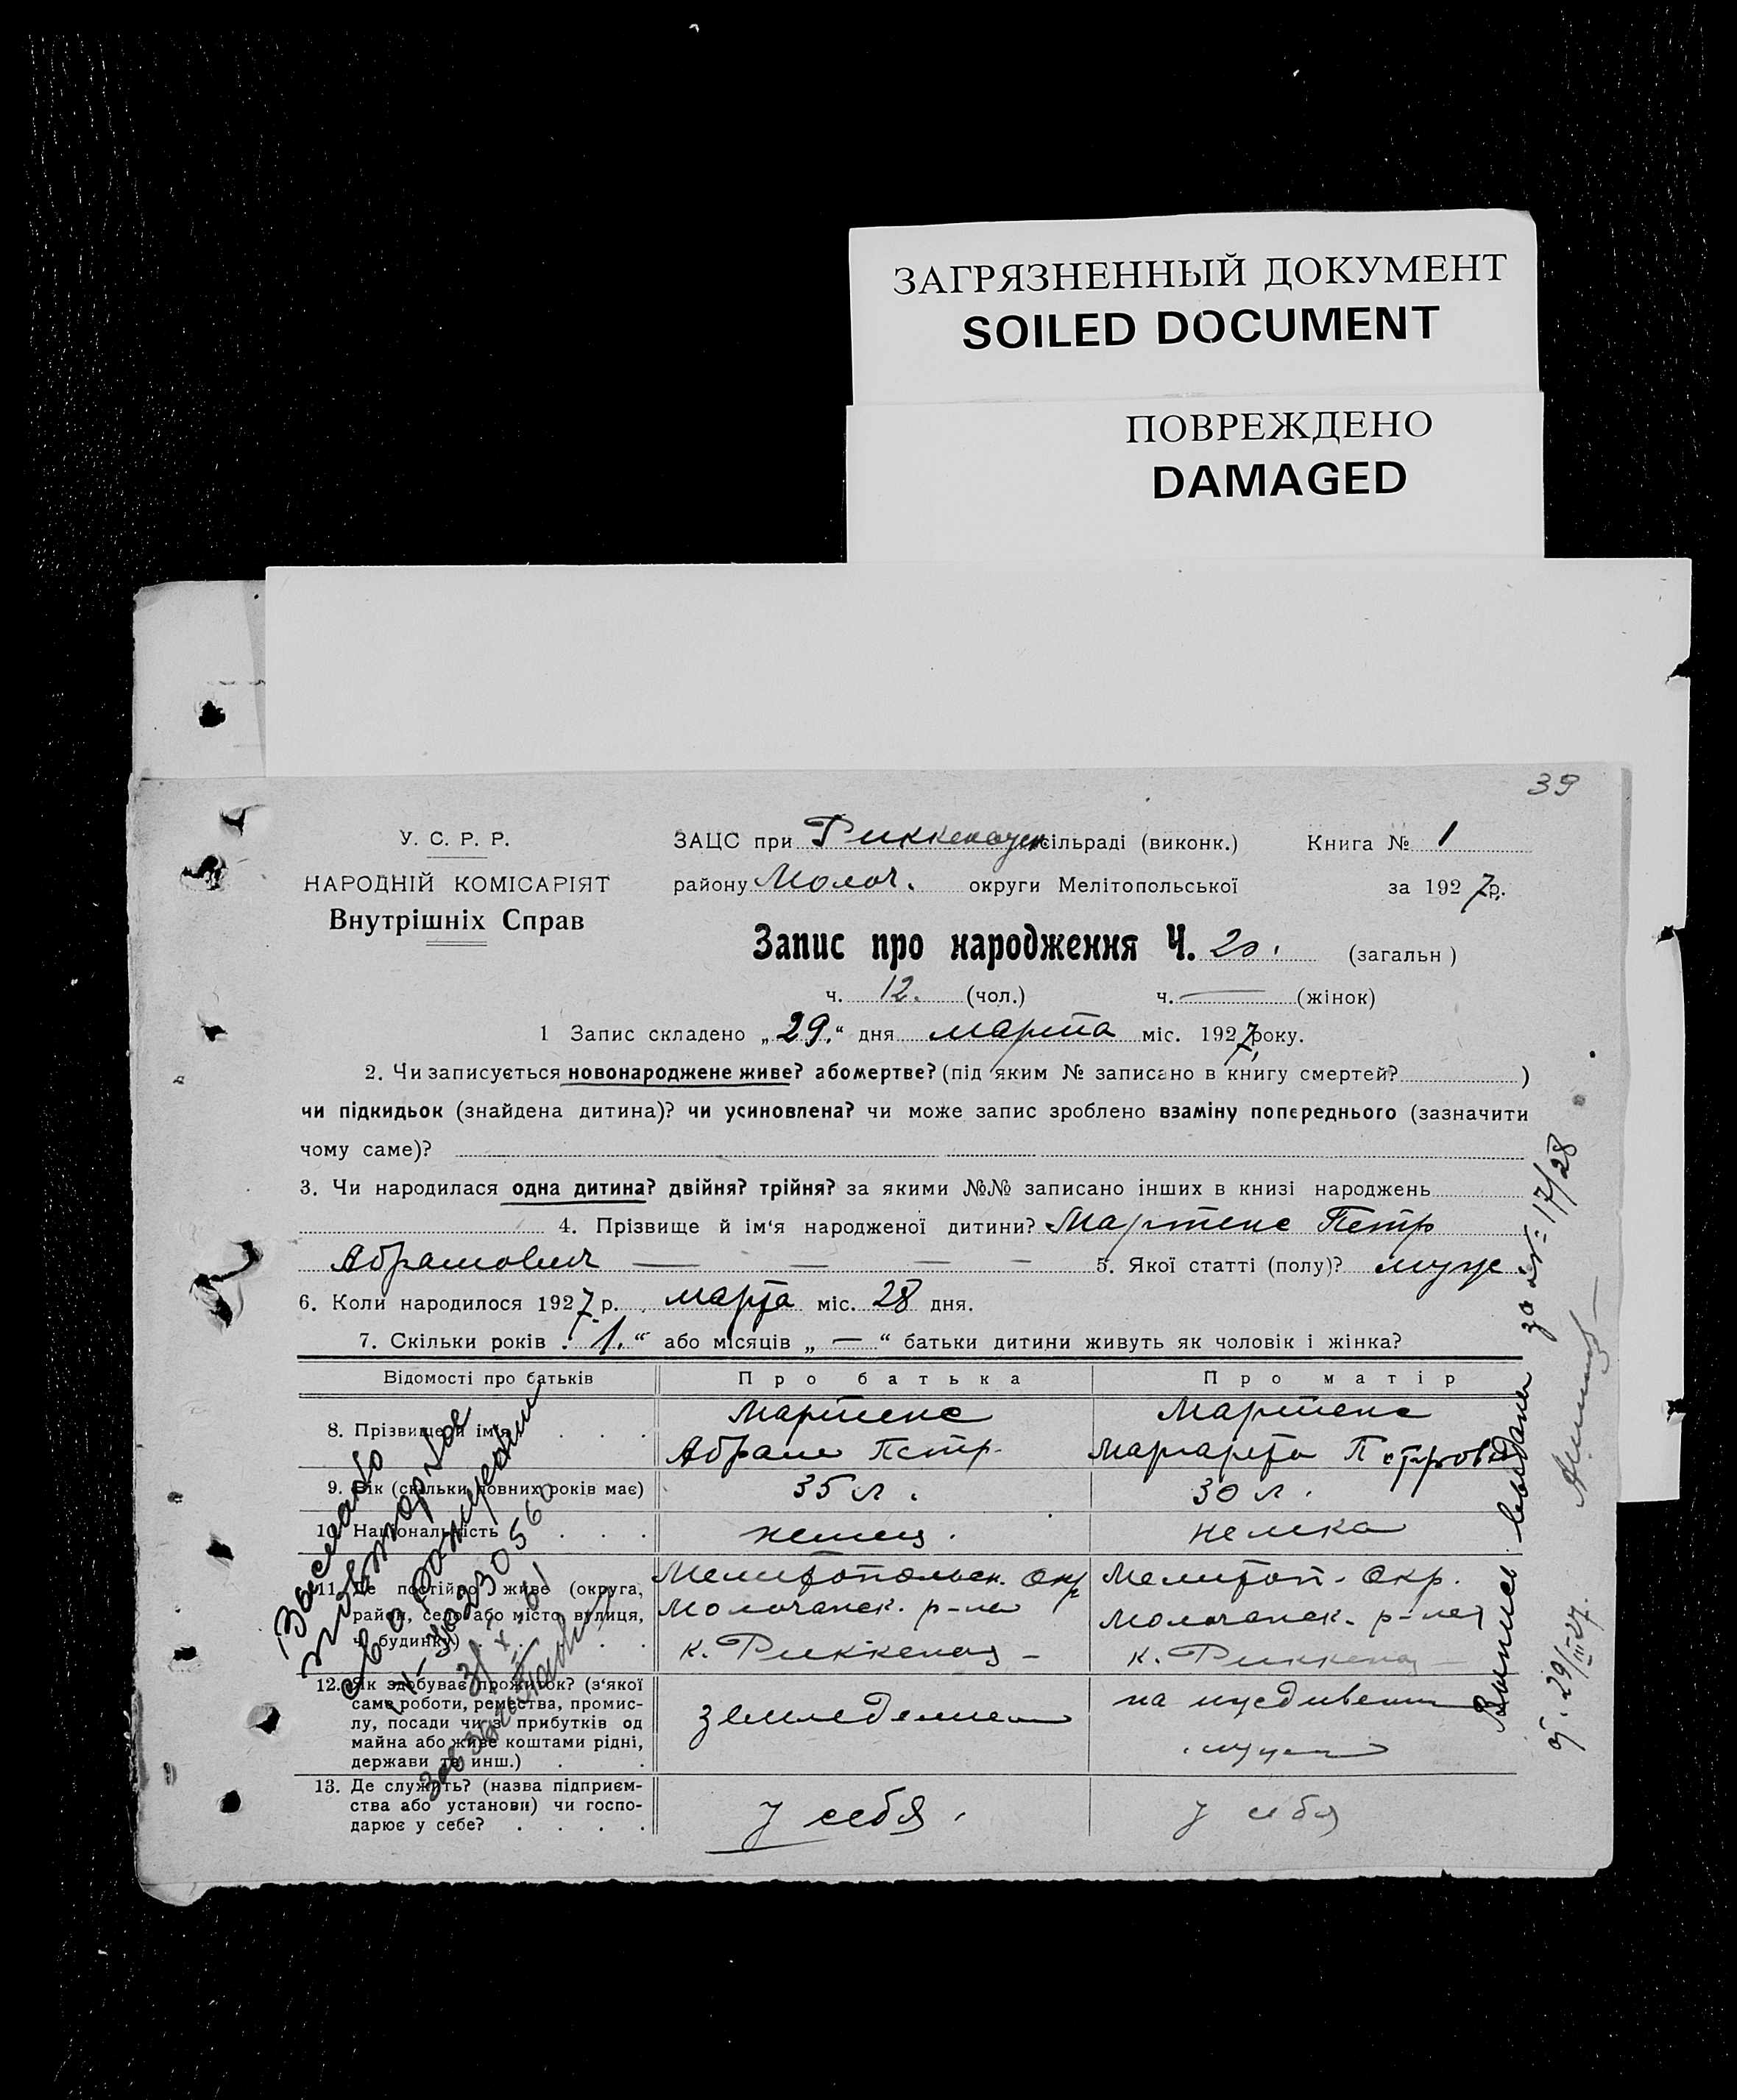 ЗАГРЯЗНЕННЫЙ ДОКУМЕНТ
SOILED DOCUMENT
ПОВРЕЖДЕНО
DAMAGED
39
У. С. Р. Р.
НАРОДНІЙ КОМІСАРІЯТ
Внутрішніх Справ
ЗАЦС при Риккенауск сільраді (виконк.) Книга № 1
району Молоч. округи Мелітопольської за 1927 р.
Запис про народження Ч. 20. (загальн )
ч. 12. (чол.) ч. — (жінок)
1 Запис складено „29.“ дня марта міс. 1927 року.
2. Чи записується новонароджене живе? або мертве? (під яким № записано в книгу смертей? )
чи підкидьок (знайдена дитина)? чи усиновлена? чи може запис зроблено взаміну попереднього (зазначити
чому саме)?
3. Чи народилася одна дитина? двійня? трійня? за якими №№ записано інших в книзі народжень
4. Прізвище й ім'я народженої дитини? Мартенс Петр
Абрамович — — — — 5. Якої статті (полу)? муж
6. Коли народилося 1927 р. марта міс. 28 дня.
7. Скільки років „1.“ або місяців „—“ батьки дитини живуть як чоловік і жінка?
Відомості про батьків Про батька Про матір
8. Прізвище й ім'я . . .
Мартенс
Абрам Петр.
Мартенс
Маргарета Петровна
9. Вік (скільки повних років має) 35 л. 30 л.
10. Національність . . . немец. немка
11. Де постійно живе (округа,
район, село або місто, вулиця,
ч. будинку) . . . .
Мелитопольск. Окр
Молочанск. р-на
к. Риккенау -
Мелитоп. Окр.
Молочанск. р-на
к. Риккенау -
12. Як здобуває прожиток? (з'якої
саме роботи, ремества, промис-
лу, посади чи з прибутків од
майна або живе коштами рідні,
держави та инш.) . .
земледелием
на иждивении
мужа
13. Де служить? (назва підприєм-
ства або установи) чи госпо-
дарює у себе? . . . .
у себя.
у себя
Выслано
повторное
св о рождении
31/X-61
Выпись выдана за № 17/28
от. 29/III-27.